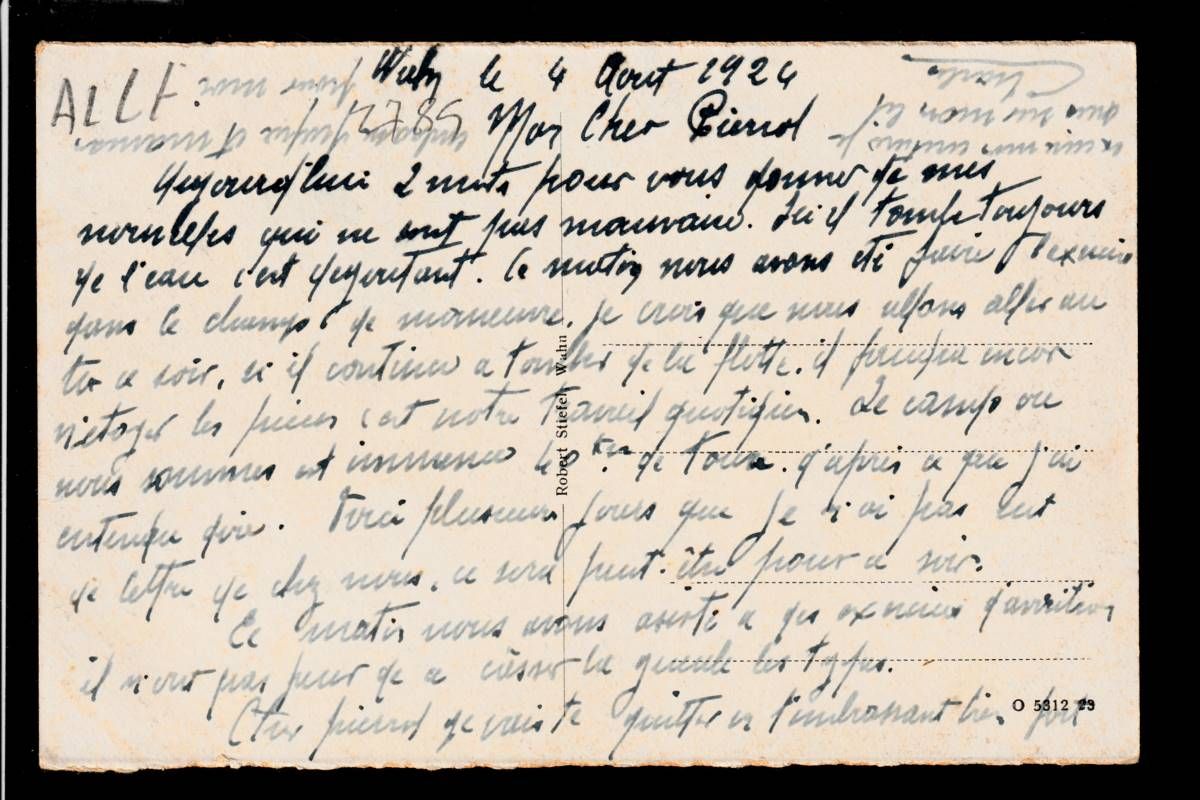 ALLE
2785
Wahn le 4 Aout 1924
Mon Cher Pierrot
Aujourd'hui 2 mots pour vous donner de mes
nouvelles qui ne sont pas mauvaise. Ici il tombe toujours
de l'eau c'est degoutant. Ce matin nous avons été faire l'exercice
dans le champs de manoeuvre. je crois que nous allons aller au
tir ce soir, si il continue a tomber de la flotte. il faudra encor
netoyer les pieces c'est notre travail quotidien. Le camp ou
nous sommes est immense 40 km de tour. d'après ce que j'ai
entendu dire. Voici plusieurs jours que je n'ai pas eut
de lettre de chez nous, ce sera peut-être pour ce soir.
Ce matin nous avons assisté a des exercices d'aviation
il n'ont pas peur de ce casser la gueule les types.
Cher pierrot je vais te quitter en t'embrassant bien fort
Robert Stiefel, Wahn
O 5312 23